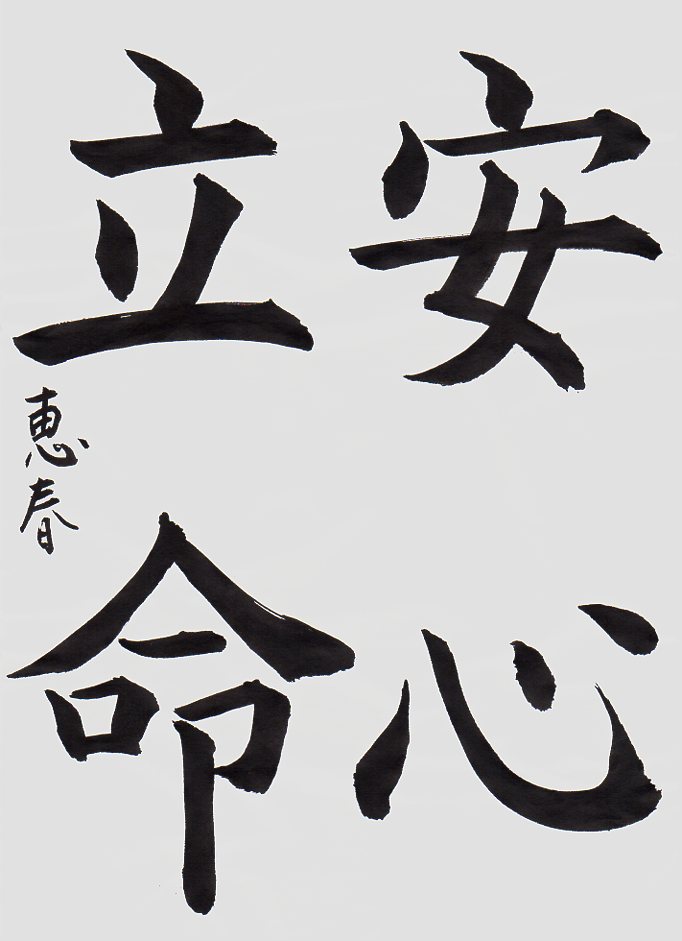 安心
立命
惠春